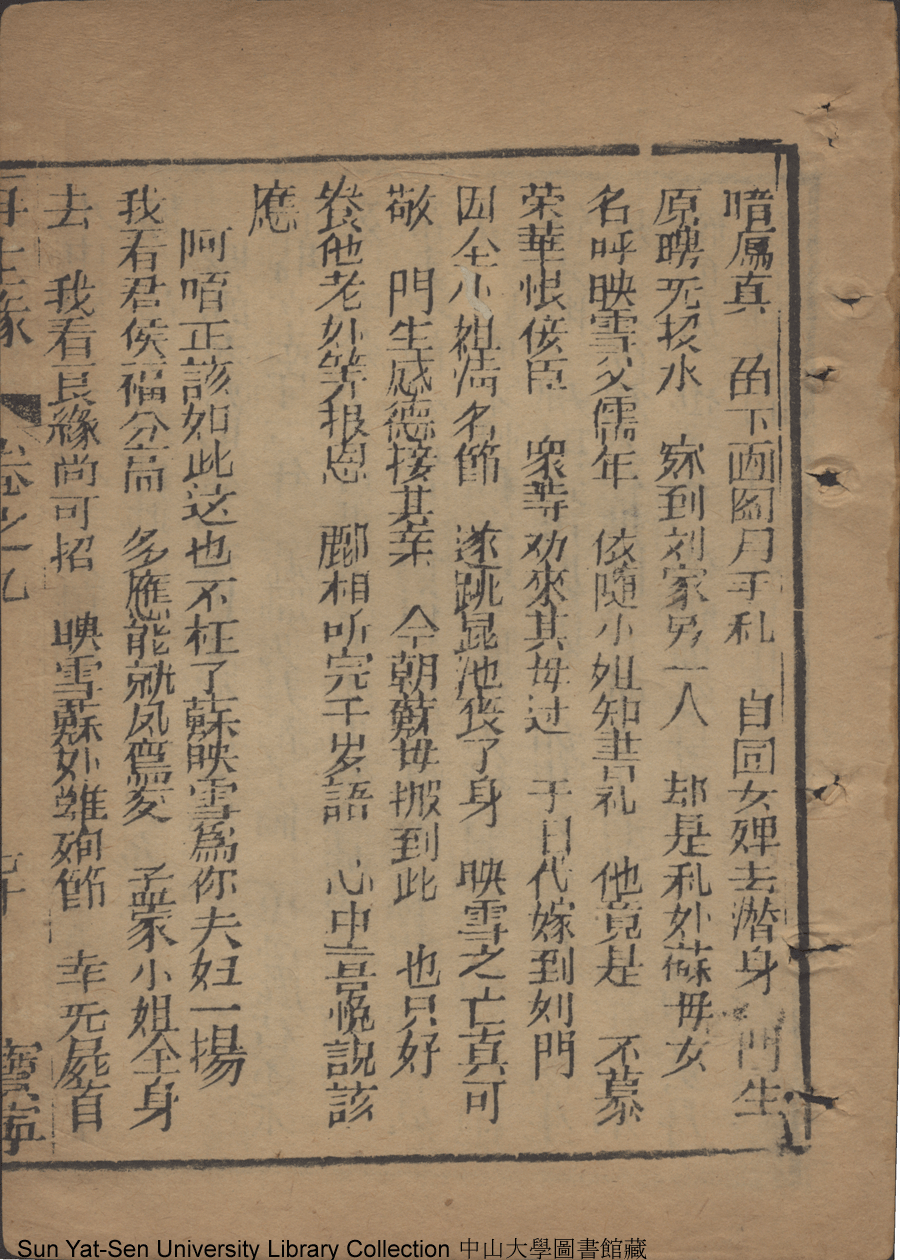 喑屬真 留下画圖月手札 自回女婢去潛身 門生
原聘死投水 嫁到刘家另一人 却是乳外蘇母女
名呼映雪父儒年 依隨小姐知書礼 他竟是 不慕
荣華恨佞臣 衆等劝來其母过 于日代嫁到刘門
因全小姐清名節 遂跳昆池丧了身 映雪之亡真可
敬 門生感德接其亲 今朝蘇母搬到此 也只好
養他老外等报恩 酈相听完千岁語 心中言悦說该
應
阿唔正該如此这也不枉了蘇映雪為你夫妇一場
我看君侯福分高 多應能就凤鸞交 孟家小姐全身
去 我看良緣尚可招 映雪蘇外雖殉節 幸死屍首
再生緣 卷之九 七十 寳寧
Sun Yat-Sen University Library Collection 中山大學圖書館藏